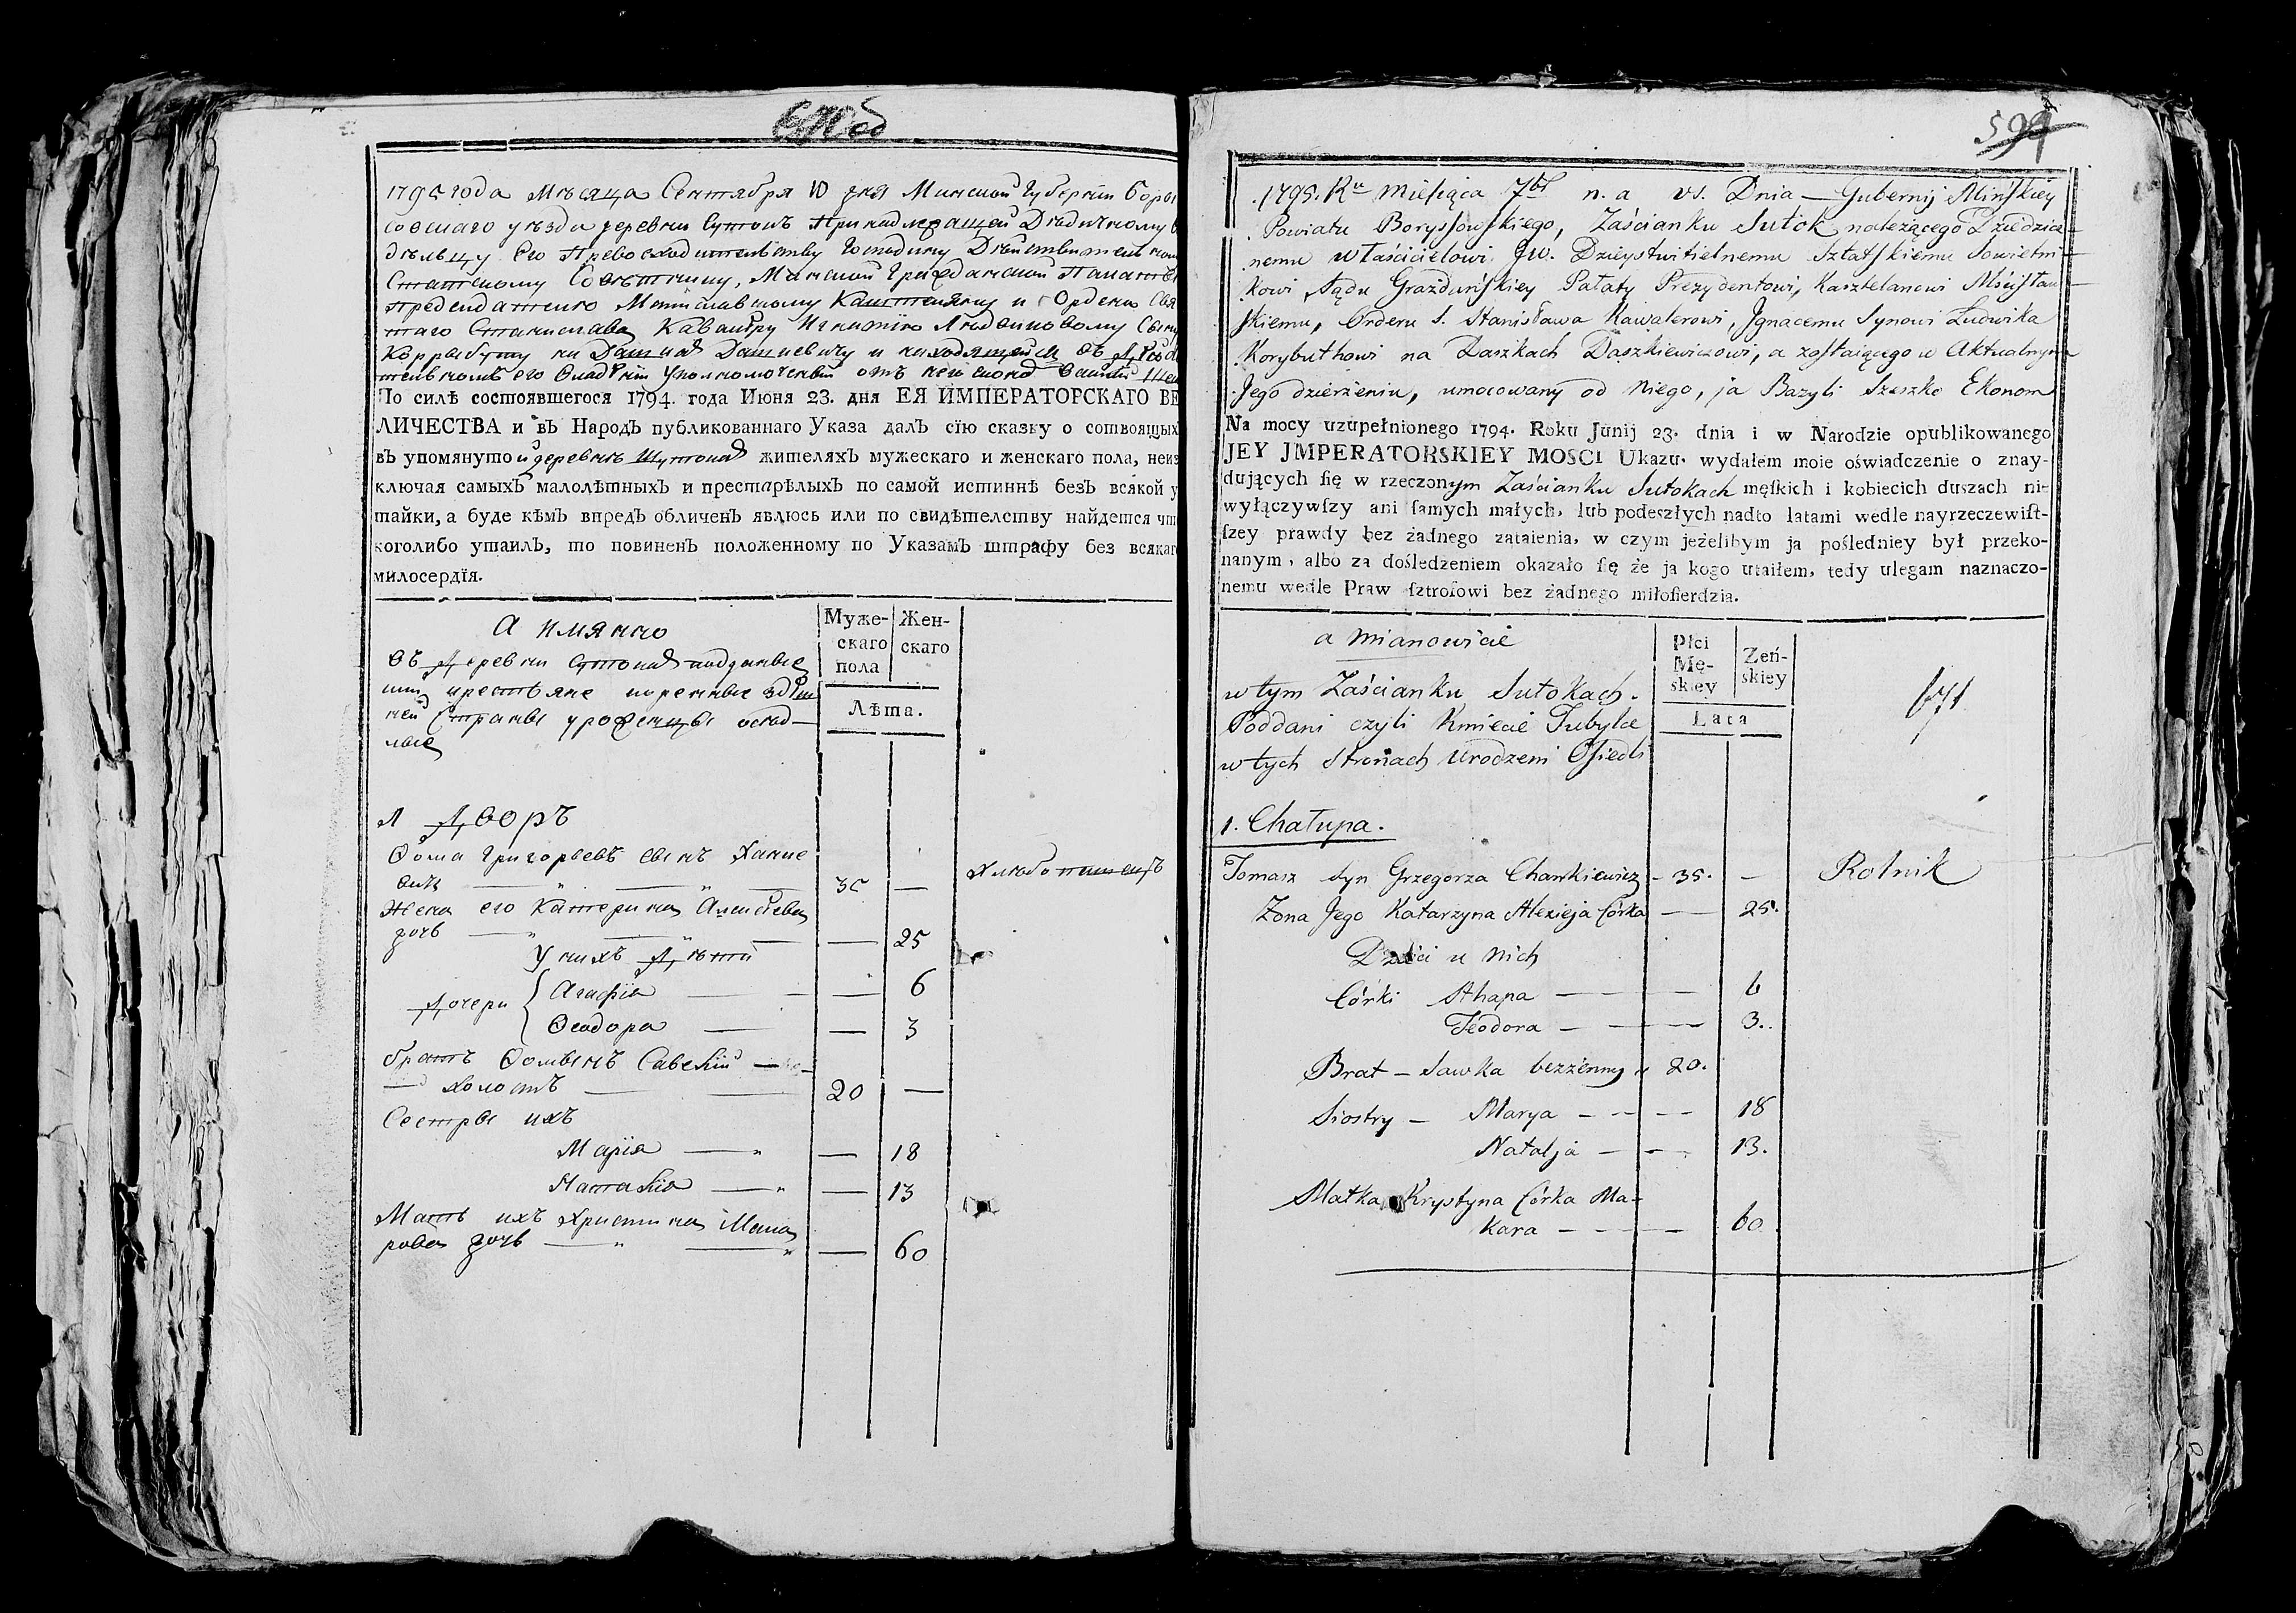 1795 года Мѣсяца Сентября 10 дня Минской Губернїи Боры
совскаго уѣзда деревни Сутокъ Принадлежащей Дѣдичному
дѣльцу Его Превосходительству Господину Дѣйствительному
Статскому Совѣтнику, Минской Гражданской Палаты
предсидателю Мстиславскому Каштеляну и Ордена Свя
таго Станислава Кавалеру Игнатїю Людвиковому Сыну
Коррыбуту на Дашках Дашкевичу и находящейся въ
его Владѣнїи Уполномоченный отъ него Василїй
По силѣ состоявшегося 1794. года Июня 23. дня ЕЯ ИМПЕРАТОРСКАГО ВЕ
ЛИЧЕСТВА и въ Народъ публикованнаго Указа далъ сїю сказку о сотвоящых
въ упомянутой деревнѣ Сутоках жителяхъ мужескаго и женскаго пола, неиз
ключая самыхъ малолѣтныхъ и престарѣлыхъ по самой истиннѣ безъ всякой у
тайки, а буде кѣмъ впредъ обличенъ явлюсь или по свидѣтелству найдется чт
коголибо утаилъ, то повиненъ положенному по Указамъ штрафу без всякаг
милосердїя.
а имянно
Муже-
скаго
пола
Жен-
скаго
Лѣта.
въ деревни Сутоках подданые
крестьяне коренные здѣш
ней Страны уроженцы осѣд-
лые
1 Дворъ
Ѳома Григорьевъ сынъ Ханке
вичъ 35 — хлѣбопашецъ
Жена его Катерина Алексѣева
дочь — 25
У нихъ дѣти
дочери Агафїя — — 6
Ѳеодора — — 3
братъ Ѳоминъ Савелїй —
— холостъ — 20 —
Сестры ихъ
Марїя — — 18
Наталїя — — 13
Мать ихъ Христина Мака
рова дочь — — 60
599
1795. Ku Miesiąca 7br n. a vs. Dnia — Gubernij Mińskiey
Powiatu Borysowskiego, Zaścianku Sutok należącego Dziedzicz-
nemu właścicielowi Jw. Dzieystwitielnemu Sztatskiemu Sowietni-
kowi Sądu Grażdańskiey Pałaty Prezydentowi, Kasztelanowi Mścisław-
skiemu, Orderu S. Stanisława Kawalerowi, Jgnacemu Synowi Ludwika
Korybuthowi na Daszkach Daszkiewiczowi, a zostaiącego w Aktualnym
Jego dzierżeniu, umocowany od Niego, ja Bazyli Szeszko Ekonom
Na mocy uzupełnionego 1794. Roku Junij 23. dnia i w Narodzie opublikowanego
JEY JMPERATORSKIEY MOSCI Ukazu. wydałem moie oświadczenie o znay-
dujących ſię w rzeczonym Zaścianku Sutokach męſkich i kobiecich duszach nie-
wyłączywſzy ani ſamych małych, lub podeszłych nadto latami wedle nayrzeczewiſt-
ſzey prawdy bez żadnego zataienia, w czym jeżelibym ja pośledniey był przeko-
nanym, albo za dośledzeniem okazało ſię że ja kogo utaiłem, tedy ulegam naznaczo-
nemu wedle Praw ſztrofowi bez żadnego miłoſierdzia.
a mianowicie
Płci
Mę-
skiey
Zeń-
skiey
Lata
671
w tym Zaścianku Sutokach.
Poddani czyli Kmiecie Tubylce
w tych Stronach Urodzeni Osiedli
1. Chałupa.
Tomasz Syn Grzegorza Chankiewicz - 35. — Rolnik
Żona Jego Katarzyna Alexieja Córka — 25.
Dzieci u Nich
Córki Ahapa — — 6
Teodora — — 3.
Brat - Sawka bezżenny 20.
Siostry - Marya - - - 18
Natalja - - - 13.
Matka Krystyna Córka Ma-
kara - - - 60.